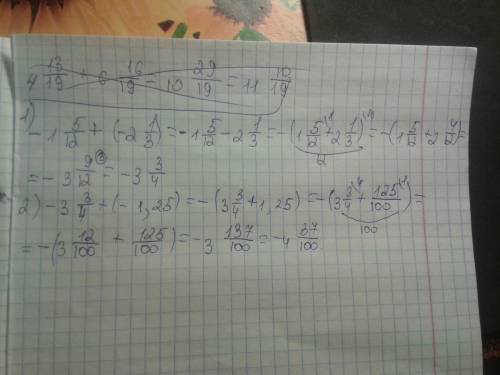 4 13/19 + 6 16/19 = 10 29/19 = 11 10/19
1)
-1 5/12 + (-2 1/3) = -1 5/12 - 2 1/3 = -(1 5/12 + 2 1/3) = -(1 5/12 + 2 4/12) =
12
= -3 9/12 = -3 3/4
2) -3 3/4 + (-1,25) = -(3 3/4 + 1,25) = -(3 3/4 + 125/100) =
100
= -(3 12/100 + 125/100) = -3 137/100 = -4 37/100